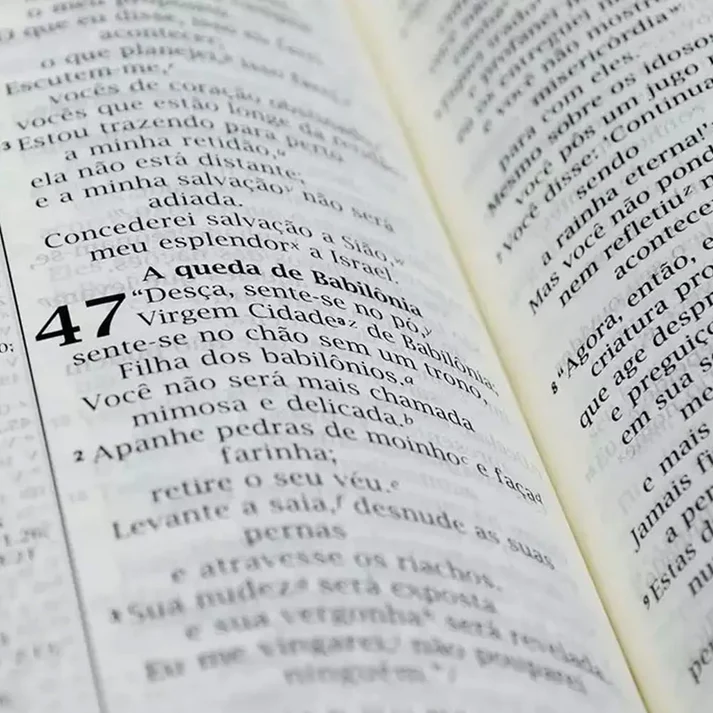 O que eu disse, isso eu farei
acontecer;
o que planejei, isso farei.
Escutem-me,
vocês de coração obstinado,
vocês que estão longe da retidão:
3 Estou trazendo para perto
a minha retidão,
ela não está distante;
e a minha salvação não será
adiada.
Concederei salvação a Sião,
meu esplendor a Israel.
A queda de Babilônia
47 "Desça, sente-se no pó,
Virgem Cidade de Babilônia;
sente-se no chão sem um trono,
Filha dos babilônios.
Você não será mais chamada
mimosa e delicada.
2 Apanhe pedras de moinho e faça
farinha;
retire o seu véu.
Levante a saia, desnude as suas
pernas
e atravesse os riachos.
3 Sua nudez será exposta
e sua vergonha será revelada.
Eu me vingarei; não pouparei
ninguém."
misericórdia
para com eles.
Mesmo sobre os idosos
você pôs um jugo
7 Você disse: 'Continua
sendo
a rainha eterna!'
Mas você não pond
nem refletiu
acontece
8 "Agora, então, e
criatura pro
que age despr
e preguiço
em sua s
me
e mais
Jamais fi
a per
9 Estas d
nu